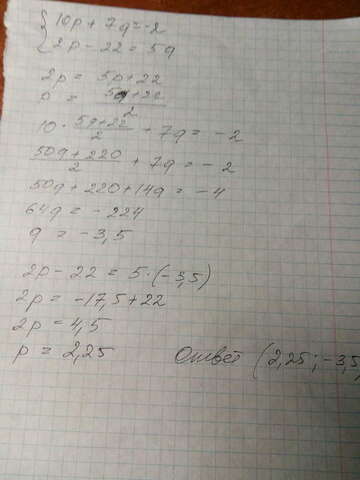 { 10p + 7q = -2
2p - 22 = 5q
2p = 5p + 22
p = 5q + 22 / 2
10 · 5q + 22 / 2 + 7q = -2
50q + 220 / 2 + 7q = -2
50q + 220 + 14q = -4
64q = -224
q = -3,5
2p - 22 = 5 · (-3,5)
2p = -17,5 + 22
2p = 4,5
p = 2,25 Ответ (2,25; -3,5)